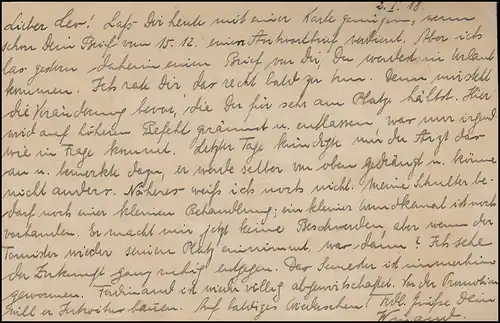 2.I.18.
Lieber Leo! Laß Dir heute mit einer Karte genügen, wenn
schon Dein Brief vom 15.12. einen Antwortbrief verdient. Aber ich
las gestern daheim einen Brief von Dir, Du werdest in Urlaub
kommen. Ich rate Dir, das recht bald zu tun. Denn mir steht
die Veränderung bevor, die Du für sehr am Platze hältst. Hier
wird auf höheren Befehl geräumt u. entlassen, was nur irgend
wie in Frage kommt. Letzter Tage kündigte mir der Arzt das
an u. bemerkte dazu, er werde selber von oben gedrängt u. könne
nicht anders. Näheres weiß ich noch nicht. Meine Schulter be-
darf noch einer kleinen Behandlung; ein kleiner Wundkanal ist noch
vorhanden. Er macht mir jetzt keine Beschwerden, aber wenn der
Tornister wieder seinen Platz einnimmt, was dann? Ich sehe
der Zukunft ganz ruhig entgegen. Das Semester ist immerhin
gewonnen. Ferdinand ist wieder völlig abgewirtschaftet. Vor der Promotion
will er Intwitus bauen. Auf baldiges Wiedersehen! Herzl. Grüße Dein